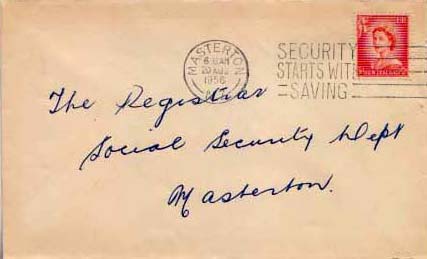 MASTERTON
6 - AM
20 AUG
1956
SECURITY
STARTS WITH
SAVING
NEW ZEALAND
The Registrar
Social Security Dept
Masterton.